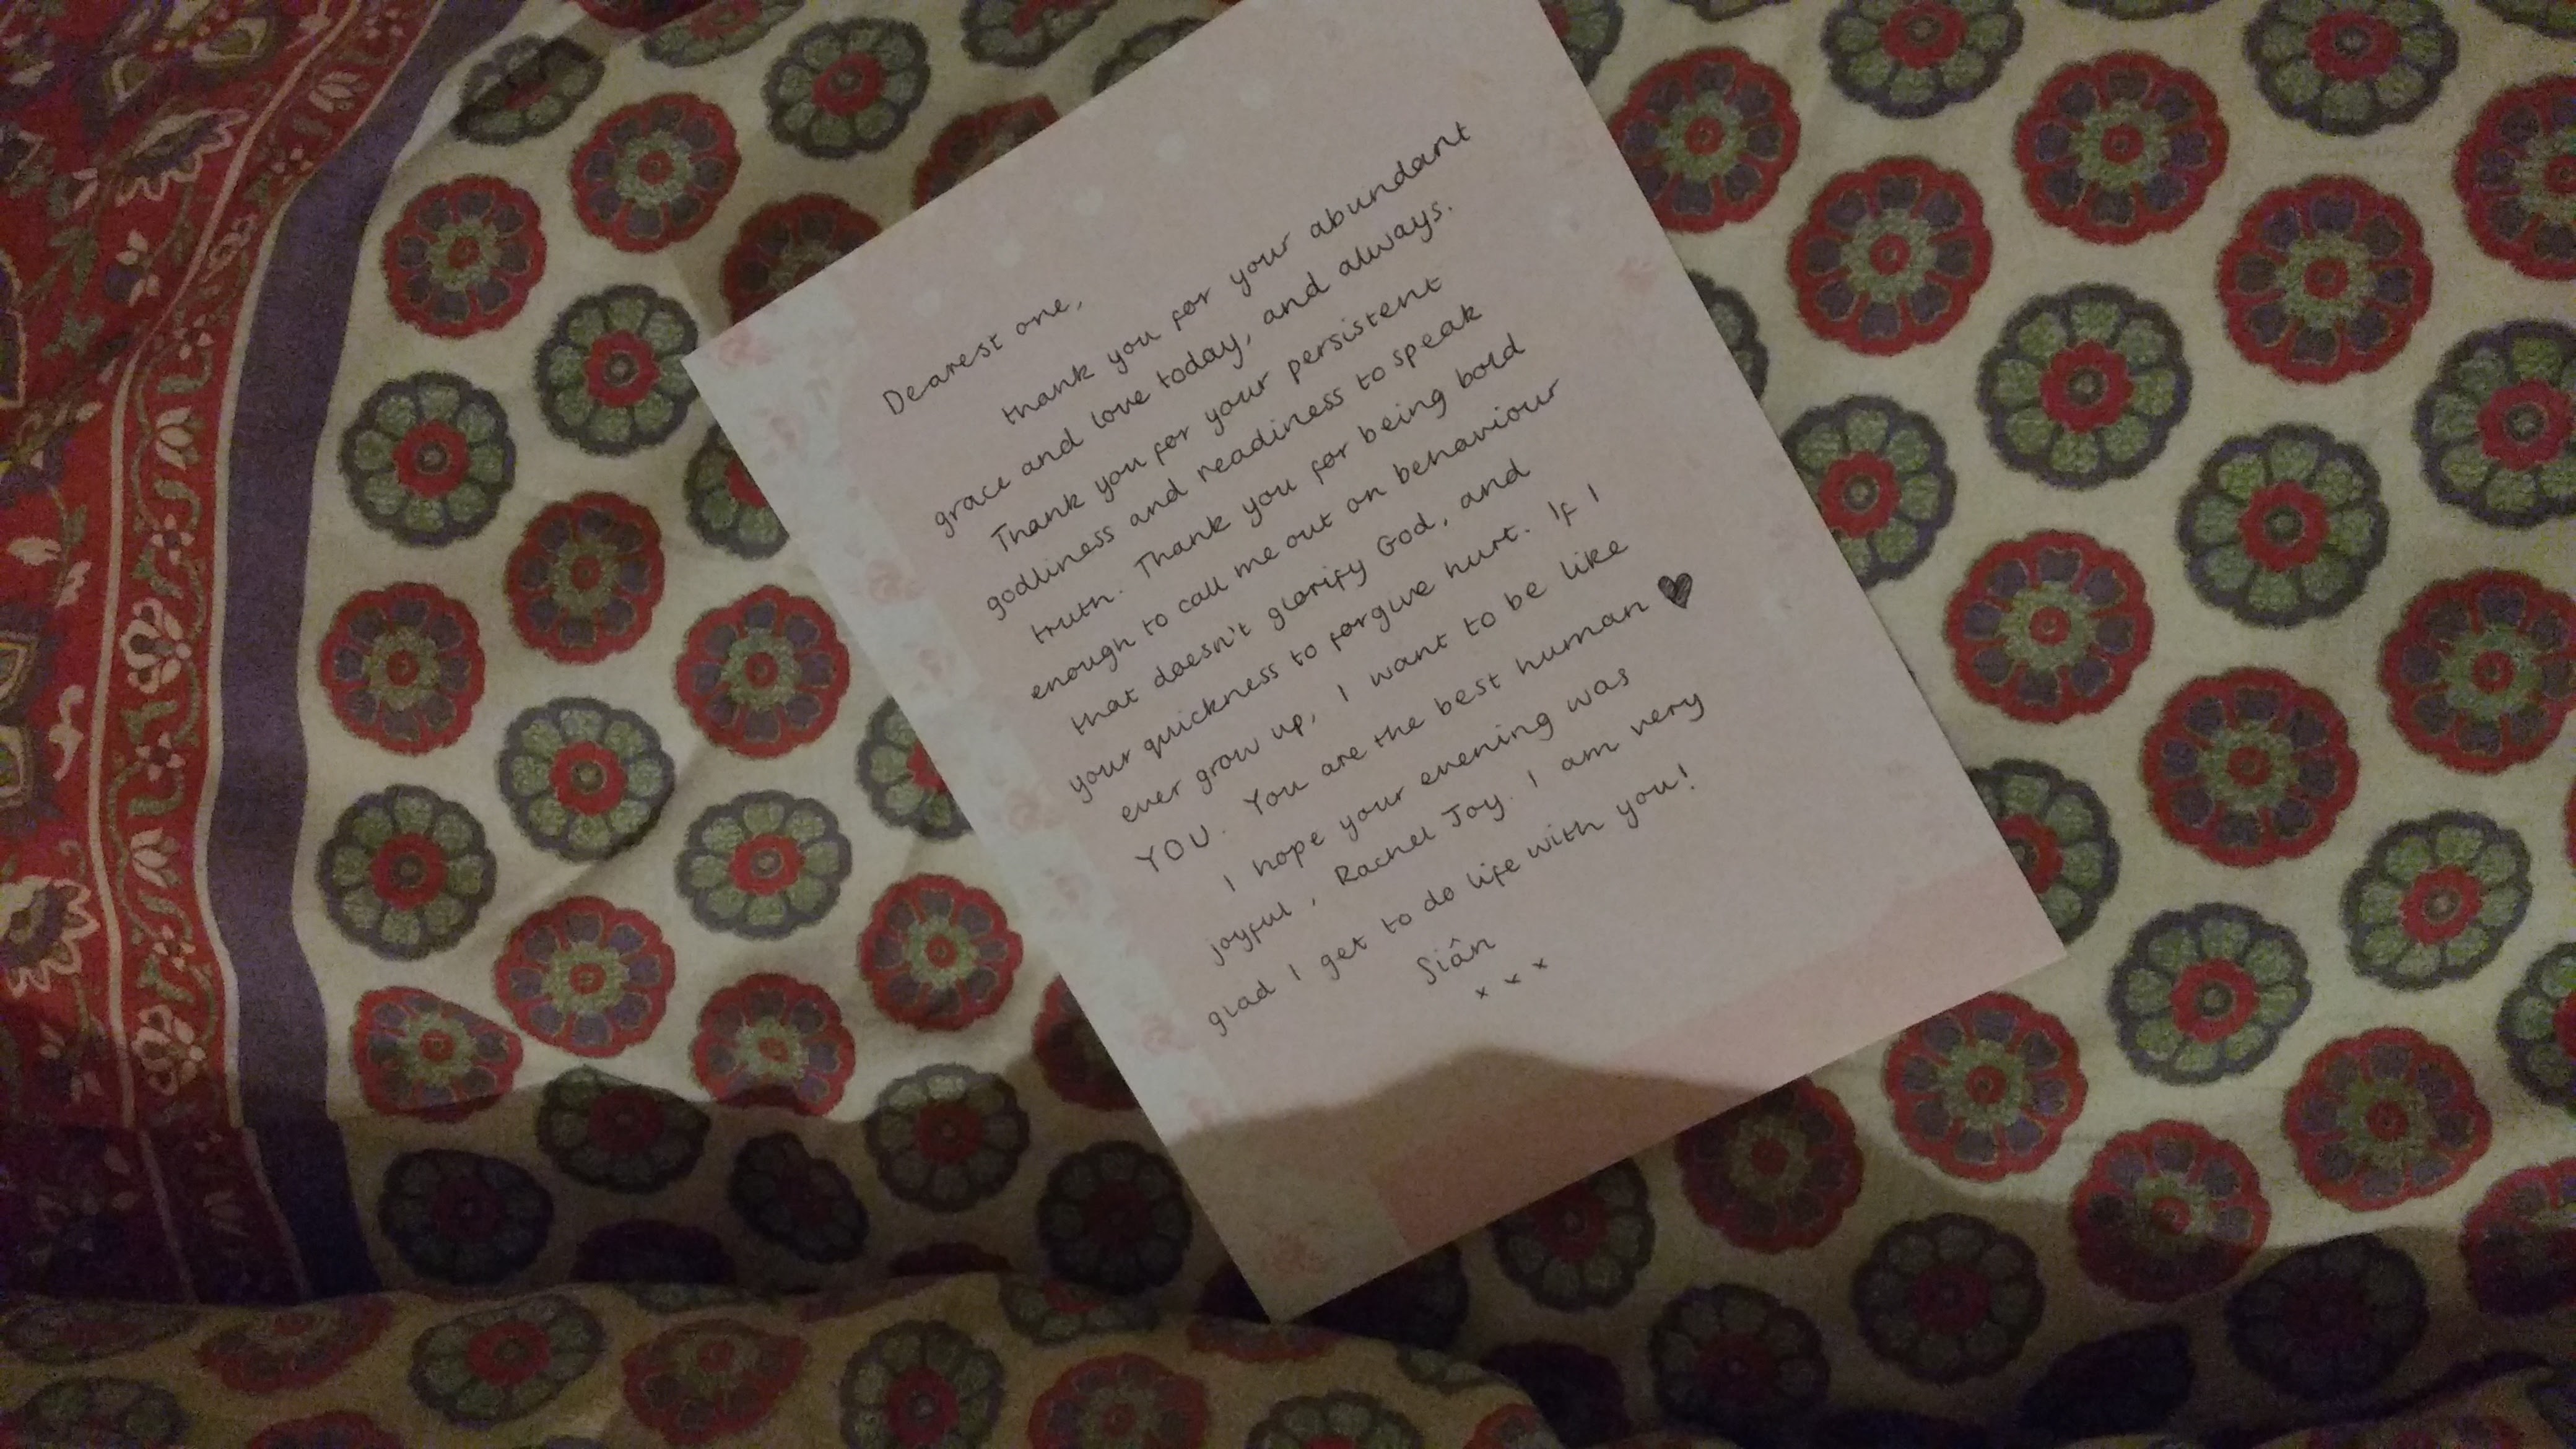 Dearest one,
thank you for your abundant
grace and love today, and always.
Thank you for your persistent
godliness and readiness to speak
truth. Thank you for being bold
enough to call me out on behaviour
that doesn't glorify God, and
your quickness to forgive hurt. If I
ever grow up, I want to be like
YOU. You are the best human ♥
I hope your evening was
joyful, Rachel Joy. I am very
glad I get to do life with you!
Siân
x x x